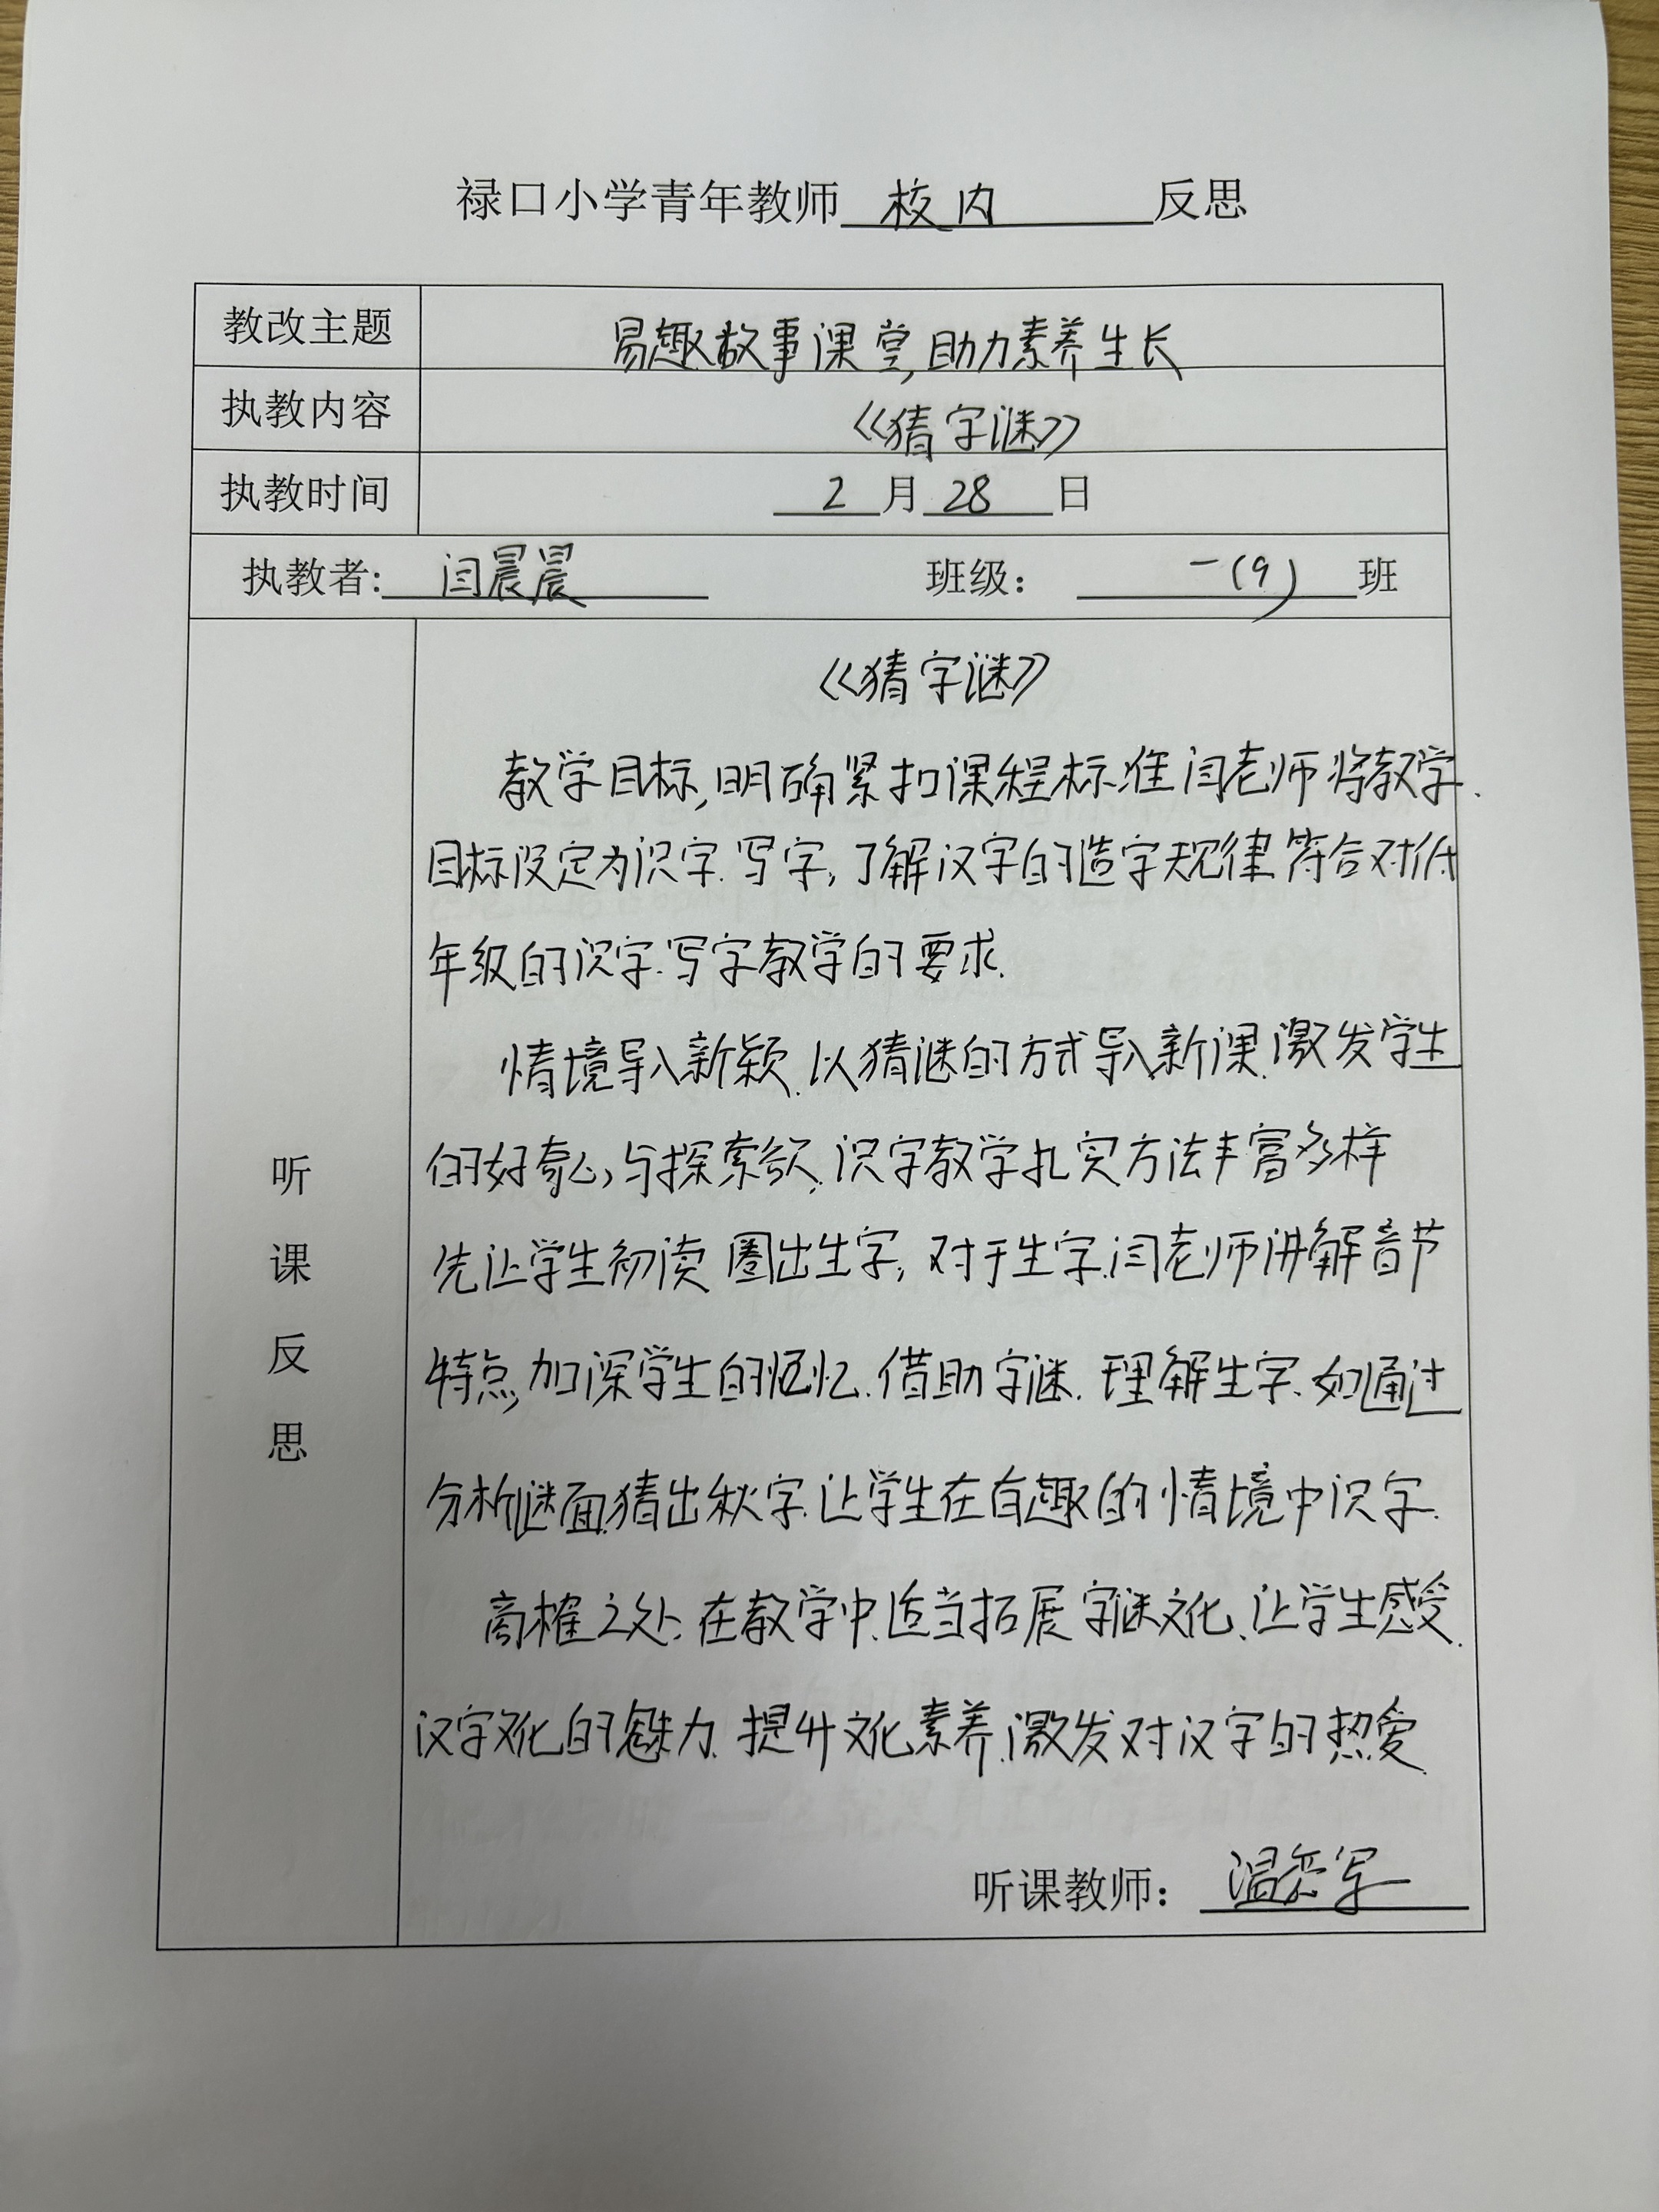 禄口小学青年教师 校内 反思
教改主题 易趣故事课堂,助力素养生长
执教内容 《猜字谜》
执教时间 2月28日
执教者: 闫晨晨 班级: 一(9)班
听课反思
《猜字谜》
教学目标,明确紧扣课程标准闫老师将教学
目标设定为识字.写字,了解汉字的造字规律.符合对低
年级的识字.写字教学的要求.
情境导入新颖.以猜谜的方式导入新课.激发学生
的好奇心,与探索欲.识字教学扎实方法丰富多样
先让学生初读 圈出生字,对于生字.闫老师讲解音节
特点,加深学生的记忆.借助字谜.理解生字.如通过
分析谜面.猜出秋字.让学生在有趣的情境中识字.
商榷之处:在教学中.适当拓展字谜文化.让学生感受.
汉字文化的魅力.提升文化素养.激发对汉字的热爱.
听课教师: 温